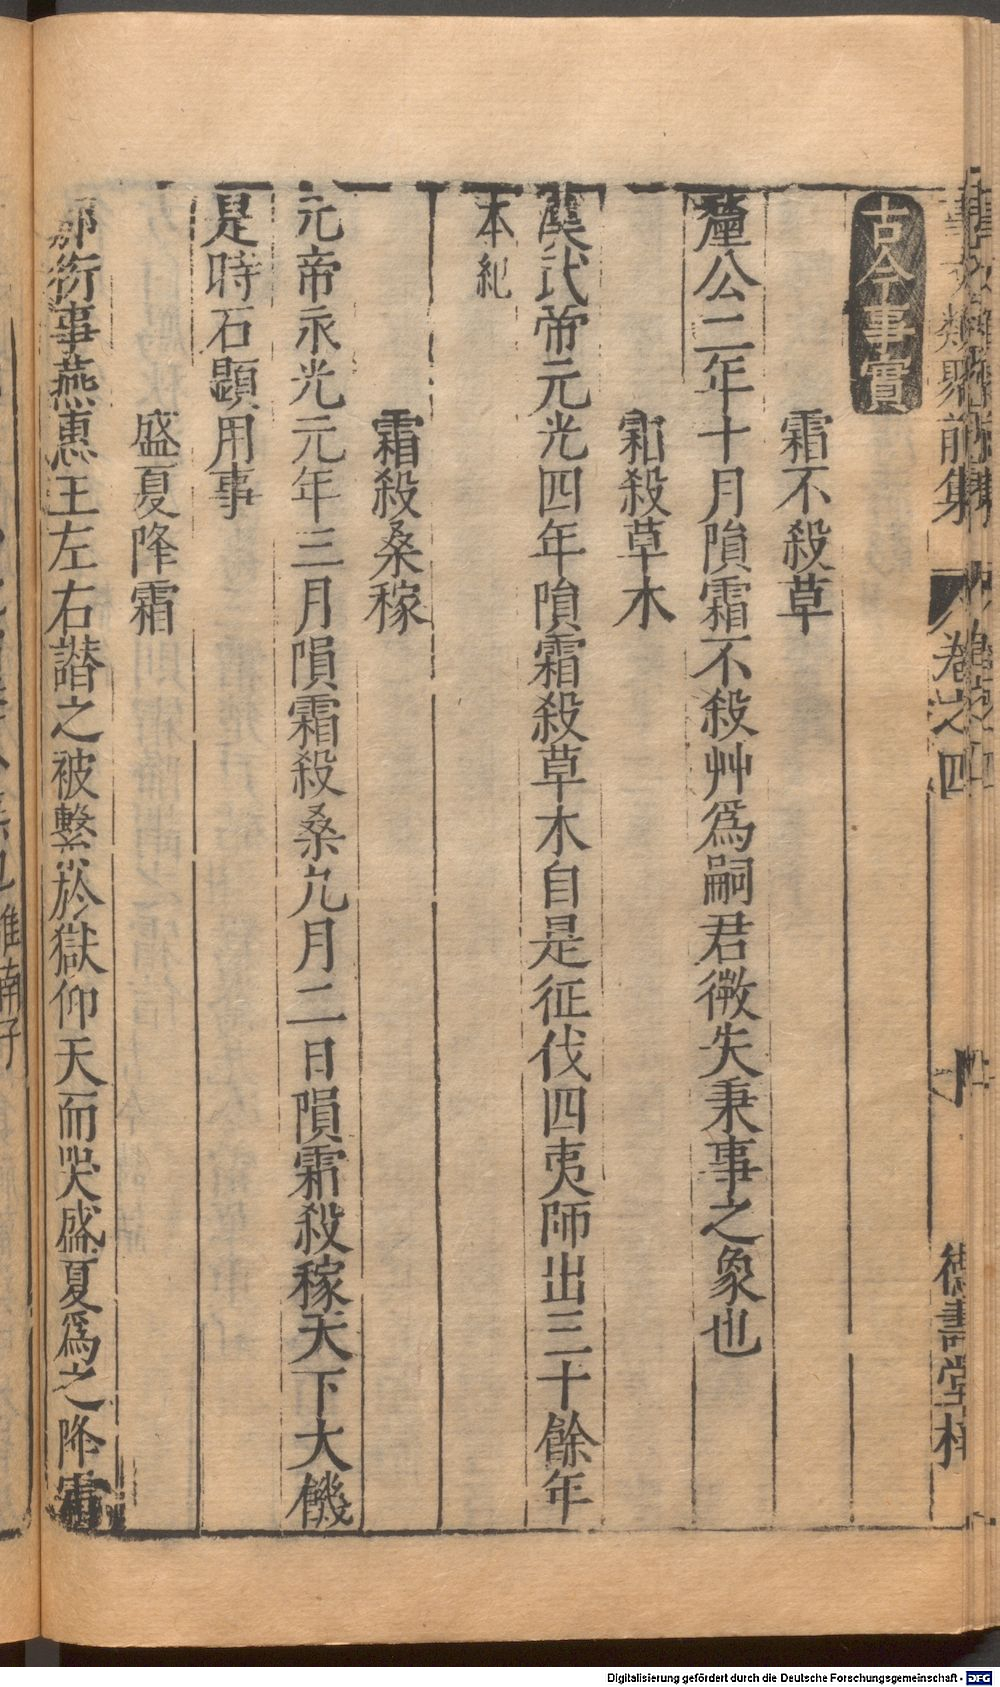 事文類聚前集 卷之四 德壽堂梓
古今事實
霜不殺草
釐公二年十月隕霜不殺艸爲嗣君微失秉事之象也
霜殺草木
漢武帝元光四年隕霜殺草木自是征伐四夷師出三十餘年
本紀
霜殺桑稼
元帝永光元年三月隕霜殺桑九月二日隕霜殺稼天下大饑
是時石顯用事
盛夏降霜
鄒衍事燕惠王左右譖之被繫於獄仰天而哭盛夏爲之降霜
淮南子
Digitalisierung gefördert durch die Deutsche Forschungsgemeinschaft - DFG